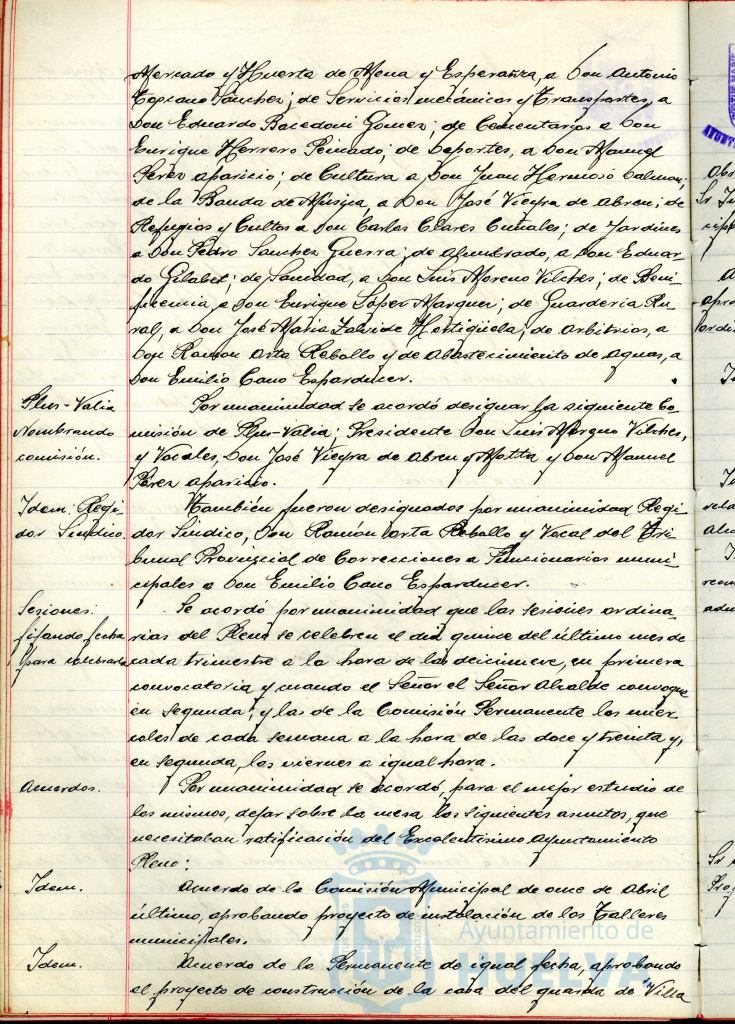 Mercado y Huerta de Mena y Esperanza, a Don Antonio
Toscano Sánchez; de Servicios mecánicos y Transportes, a
Don Eduardo Bacedoni Gomez; de Cementarios a Don
Enrique Herrero Peinado; de Deportes, a Don Manuel
Perez aparicio; de Cultura a Don Juan Hermoso
de la Banda de Música, a Don José Vieyra de Abreu; de
Refugios y Cultos a Don Carlos Clares Cuñales; de Jardines
a Don Pedro Sanchez Guerra; de alumbrado, a Don Eduar-
do Gilabet; de Sanidad, a Don Luis Moreno Vilches; de Beni-
ficencia, a Don Enrique López Marquez; de Guarderia Ru-
ral, a Don José Maria Zalvide Hortigüela; de Arbitrios, a
Don Ramon Orta Rebollo y de abastecimiento de aguas, a
Don Emilio Cano Esparducer.
Plus-Valia
Nombrando
comisión.
Por unanimidad se acordó designar la siguiente Co-
misión de Plus-Valia; Presidente Don Luis Moreno Vilches,
y Vocales, Don José Vieyra de Abreu y Motta y Don Manuel
Perez aparicio.
Idem: Regi-
dor Síndico.
También fueron designados por unanimidad Regi-
dor Síndico, Don Ramón Orta Rebollo y Vocal del Tri-
bunal Provincial de Correcciones a Funcionarios muni-
cipales a Don Emilio Cano Esparducer.
Sesiones:
fijando fecha
para celebrarla
Se acordó por unanimidad que las sesiones ordina-
rias del Pleno se celebren el día quince del último mes de
cada trimestre a la hora de las diecinueve, en primera
convocatoria y cuando el Señor el Señor Alcalde convoque
en segunda; y las de la Comisión Permanente los miér-
coles de cada semana a la hora de las doce y treinta y,
en segunda, los viernes a igual hora.
Acuerdos.
Por unanimidad se acordó, para el mejor estudio de
los mismos, dejar sobre la mesa los siguientes asuntos, que
necesitaban ratificación del Excelentísimo Ayuntamiento
Pleno:
Idem.
Acuerdo de la Comisión Municipal de once de Abril
último, aprobando proyecto de instalación de los Talleres
municipales.
Idem.
Acuerdo de la Permanente de igual fecha, aprobando
el proyecto de construcción de la casa del guarda de "Villa
Ayuntamiento de
HUELVA